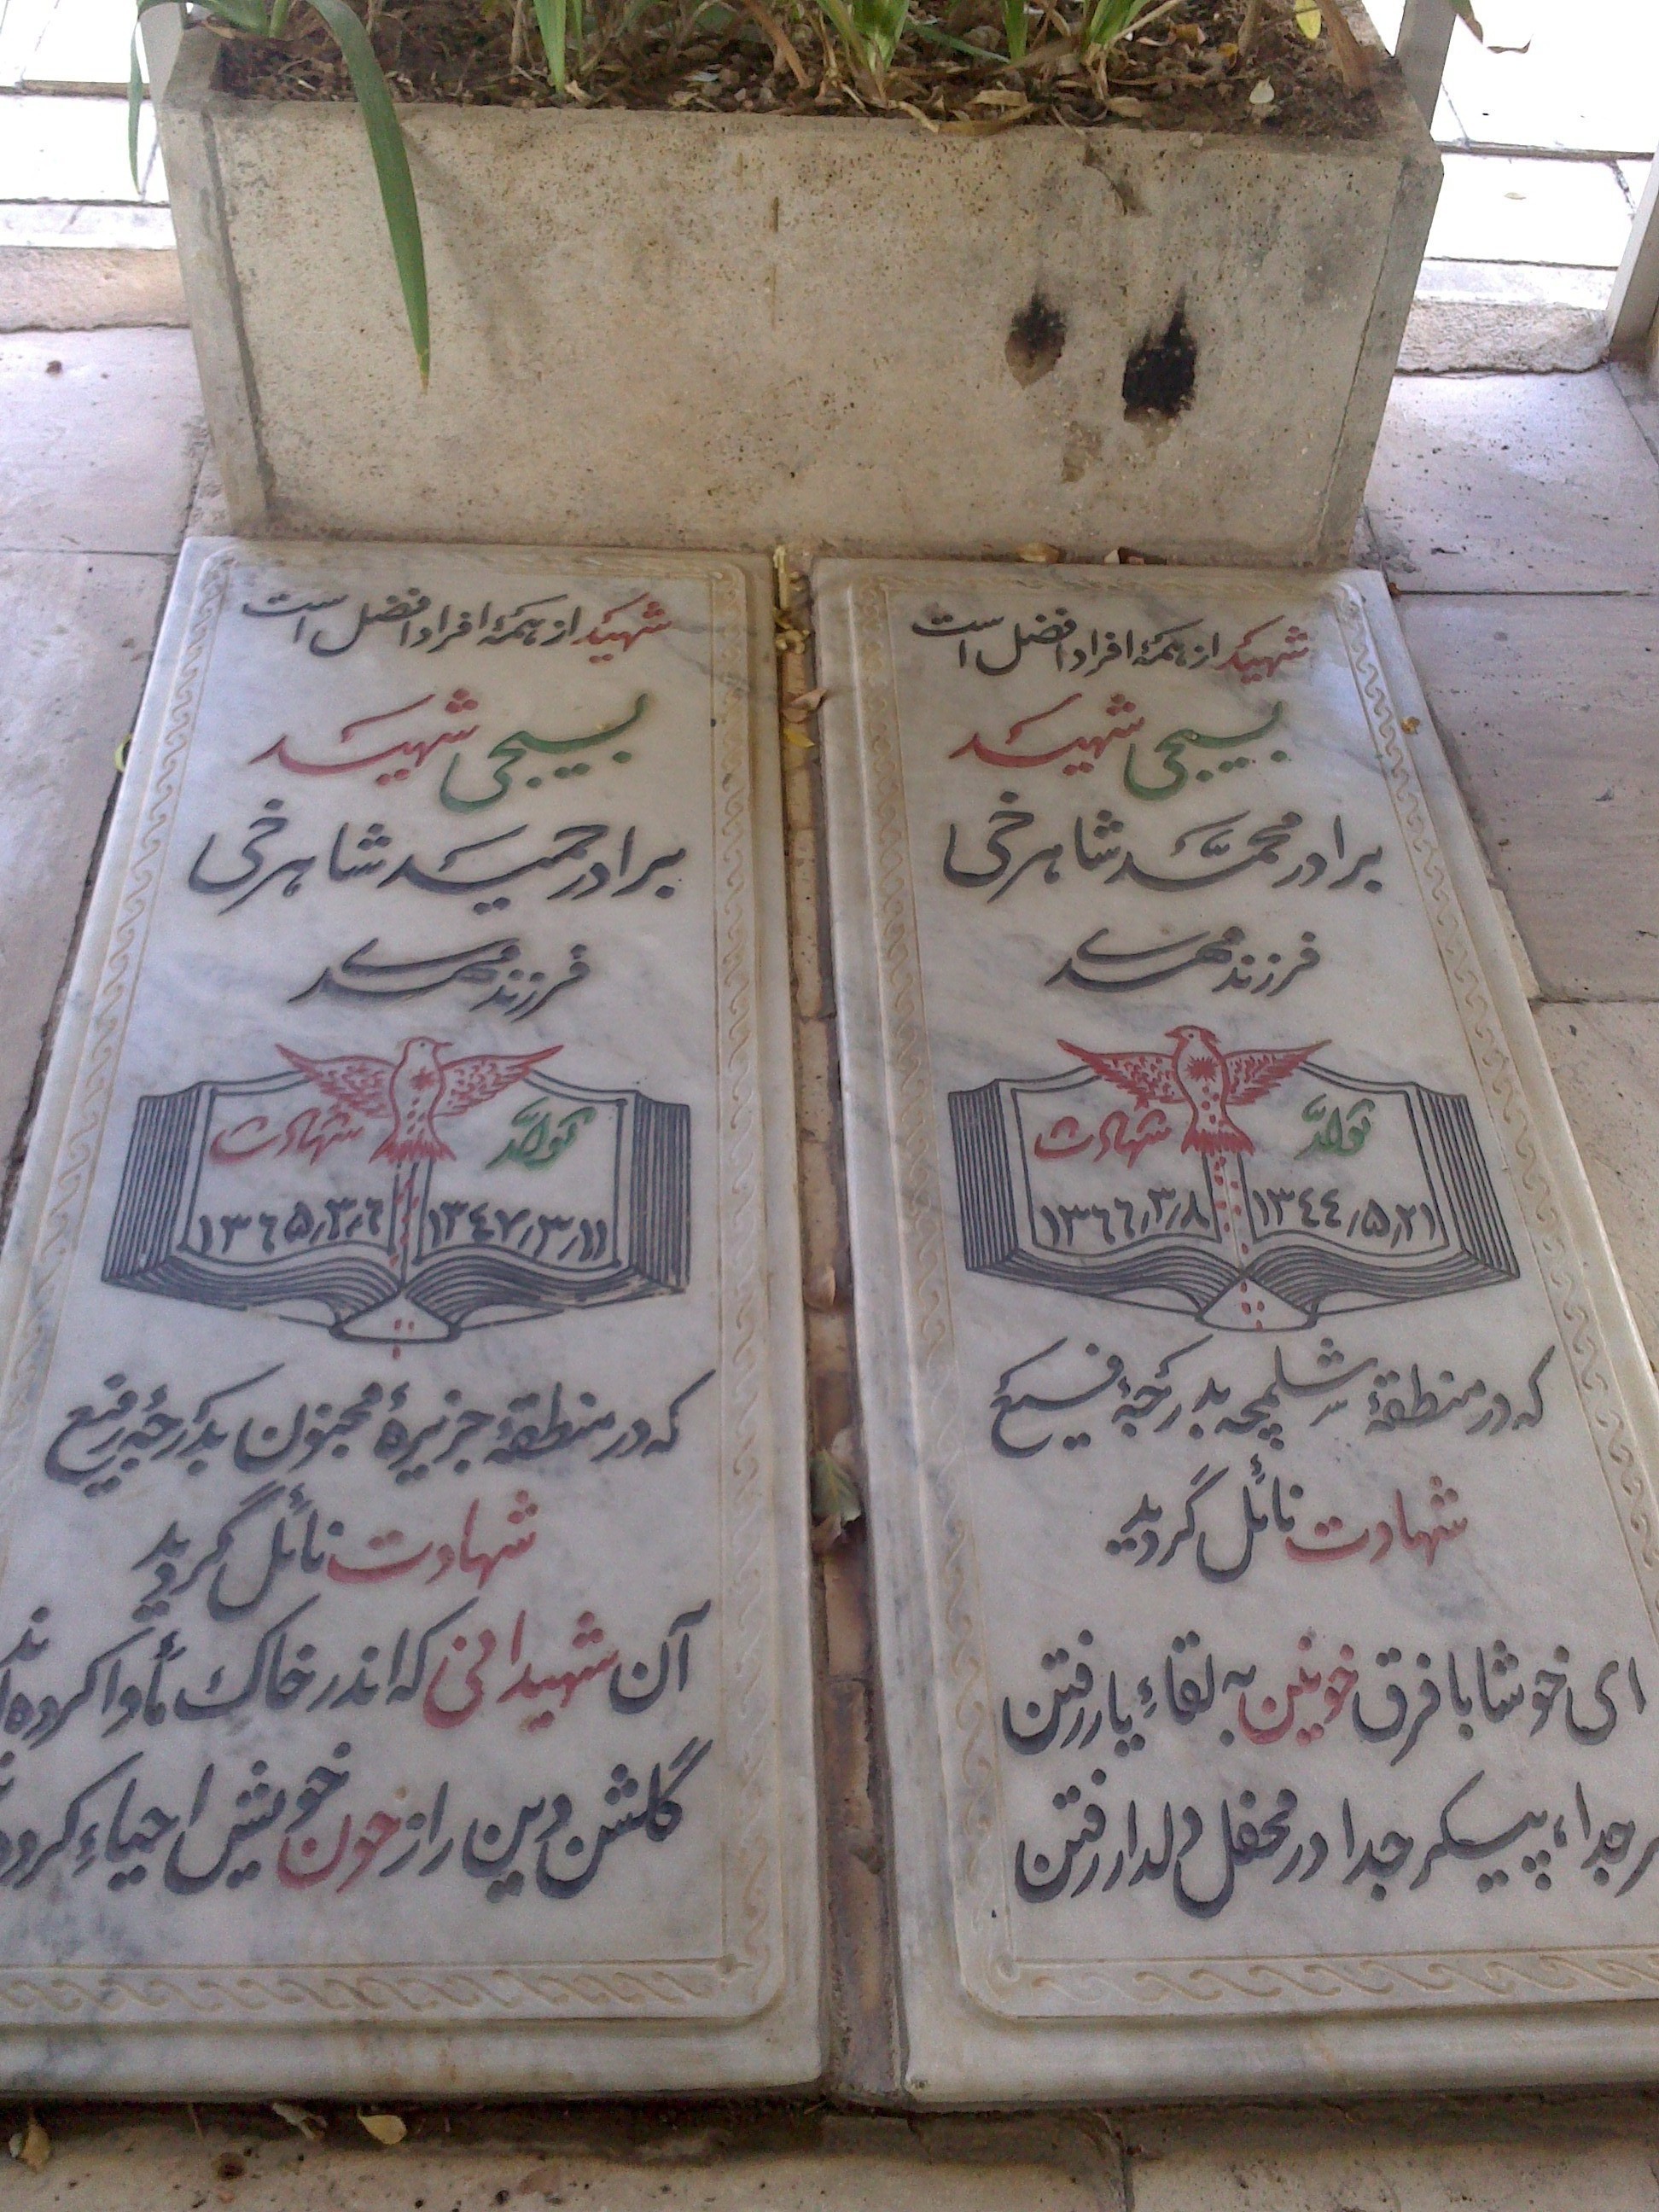 شهید از همهٔ افراد افضل است
بسیجی شهید
برادر محمّد شاهرخی
فرزند مهدی
تولّد شهادت
۱۳۴۴٫۵٫۲۱ ۱۳۶۶٫۳٫۸
که در منطقهٔ شلمچه بدرجهٔ رفیع
شهادت نائل گردید
ای خوشا با فرق خونین به لقاءِ یار رفتن
جدا، پیکر جدا در محفل دلدار رفتن
شهید از همهٔ افراد افضل است
بسیجی شهید
برادر حمید شاهرخی
فرزند مهدی
تولّد شهادت
۱۳۴۷٫۳٫۱۱ ۱۳۶۵٫۳٫۶
که در منطقهٔ جزیرهٔ مجنون بدرجهٔ رفیع
شهادت نائل گردید
آن شهیدانی که اندر خاک مأوا کرده‌اند
گلشن دین را از خون خویش احیاءِ